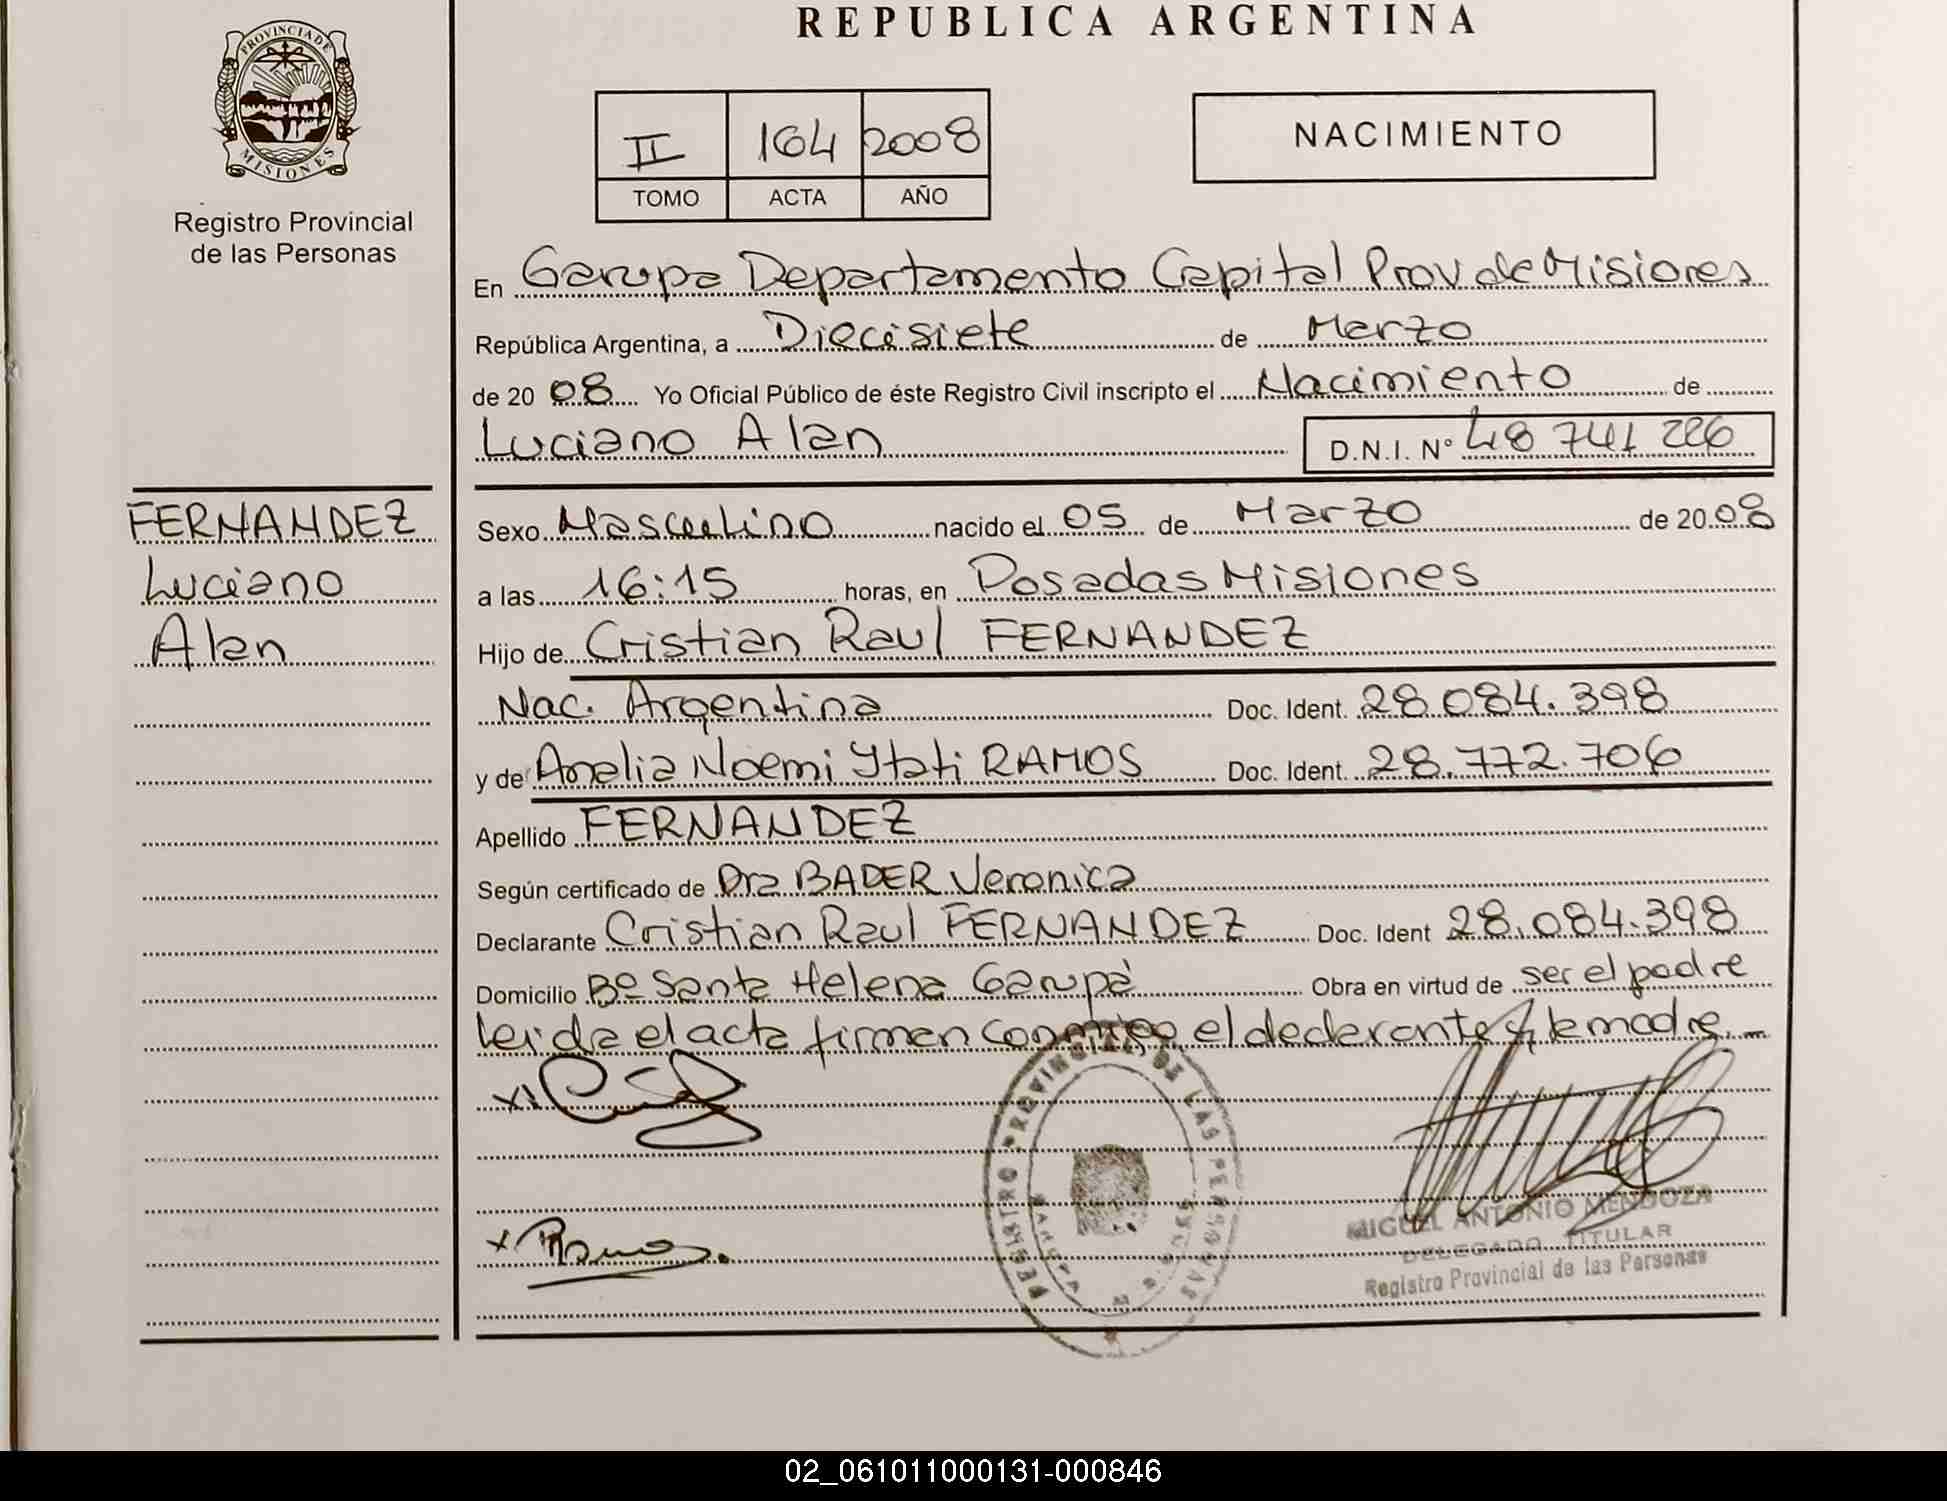 REPUBLICA ARGENTINA
PROVINCIA DE MISIONES
Registro Provincial
de las Personas
II 164 2008
TOMO ACTA AÑO
NACIMIENTO
En Garupa Departamento Capital Prov de Misiones
República Argentina, a Diecisiete de Marzo
de 20 08 Yo Oficial Público de éste Registro Civil inscripto el Nacimiento de
Luciano Alan D.N.I. N° 48 741 226
FERNANDEZ
Luciano
Alan
Sexo Masculino nacido el 05 de Marzo de 20 08
a las 16:15 horas, en Posadas Misiones
Hijo de Cristian Raul FERNANDEZ
Nac. Argentina Doc. Ident. 28.084.398
y de Analia Noemi Ytati RAMOS Doc. Ident. 28.772.706
Apellido FERNANDEZ
Según certificado de Dra BADER Veronica
Declarante Cristian Raul FERNANDEZ Doc. Ident 28.084.398
Domicilio Bº Santa Helena Garupá Obra en virtud de ser el padre
leida el acta firman conmigo el declarante y la madre.
REGISTRO PROVINCIAL DE LAS PERSONAS
MIGUEL ANTONIO MENDOZA
DELEGADO TITULAR
Registro Provincial de las Personas
x Ramos
02_061011000131-000846